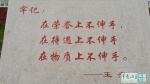 牢记:
在荣誉上不伸手,
在待遇上不伸手,
在物质上不伸手。
——王